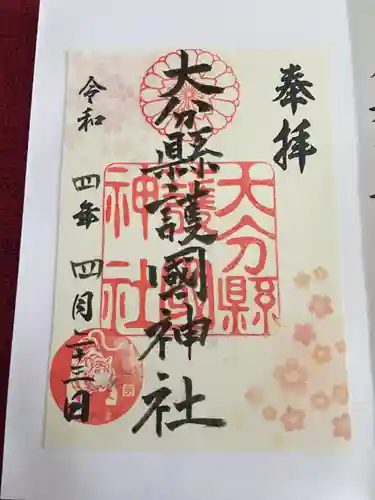 奉拝
大分縣護國神社
大分縣
護國
神社
令和四年四月二十三日